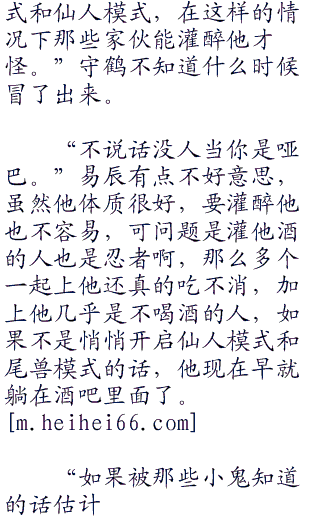 式和仙人模式，在这样的情
况下那些家伙能灌醉他才
怪。”守鹤不知道什么时候
冒了出来。
“不说话没人当你是哑
巴。”易辰有点不好意思，
虽然他体质很好，要灌醉他
也不容易，可问题是灌他酒
的人也是忍者啊，那么多个
一起上他还真的吃不消，加
上他几乎是不喝酒的人，如
果不是悄悄开启仙人模式和
尾兽模式的话，他现在早就
躺在酒吧里面了。
[m.heihei66.com]
“如果被那些小鬼知道
的话估计